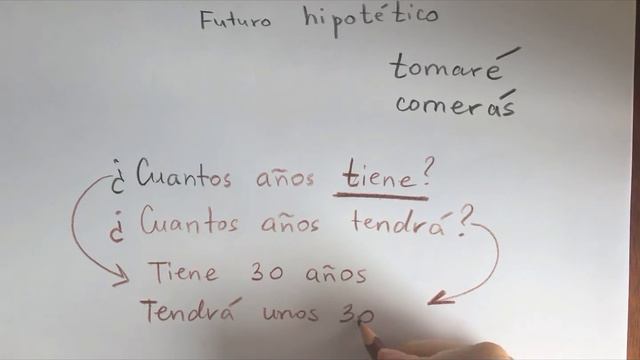 Futuro hipotético
tomaré
comerás
¿Cuantos años tiene?
¿Cuantos años tendrá?
Tiene 30 años
Tendrá unos 30